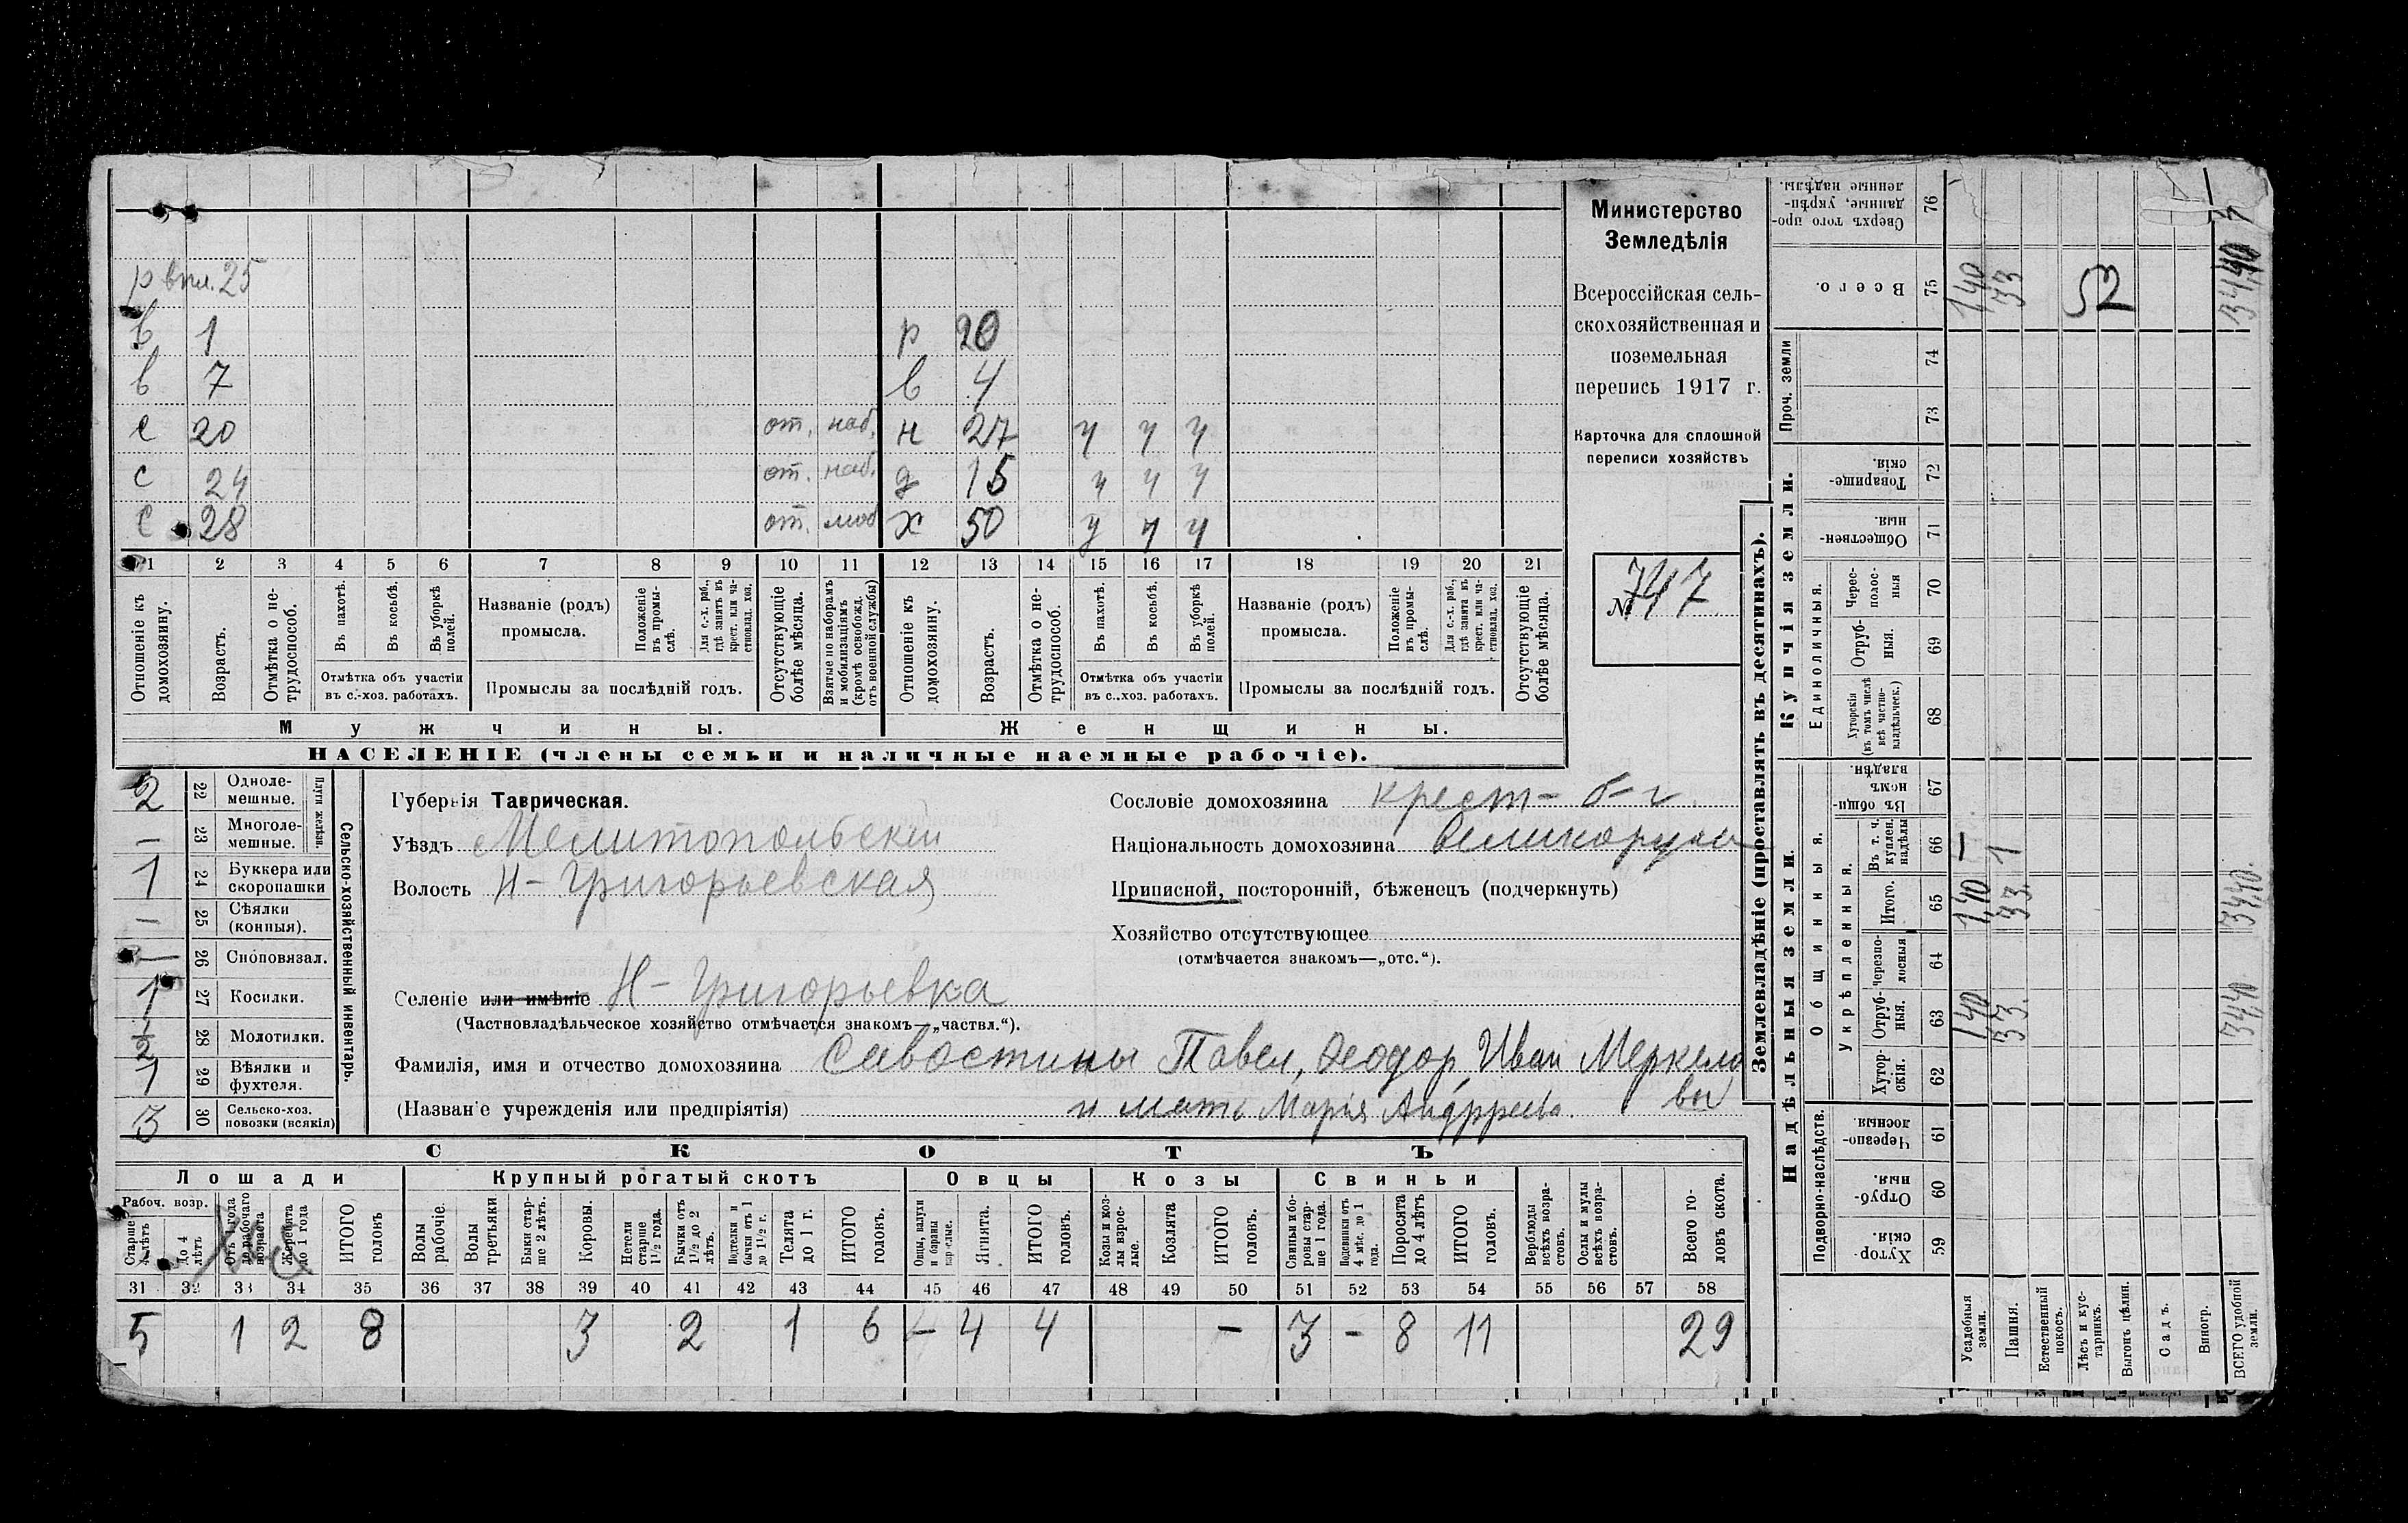 р впл. 25
в 1 р 20
в 7 в 4
с 20 от. наб. н 27 ч ч ч
с 24 от. наб. д 15 ч ч ч
с 28 от. моб х 50 у ч ч
1 2 3 4 5 6 7 8 9 10 11 12 13 14 15 16 17 18 19 20 21
Отношеніе къ домохозяину.
Возрастъ.
Отмѣтка о не-трудоспособ.
Въ пахотѣ.
Въ косьбѣ.
Въ уборкѣ полей.
Отмѣтка объ участіи
въ с.-хоз. работахъ.
Названіе (родъ)
промысла.
Положеніе въ промы-слѣ.
Для с.-х. раб., гдѣ занятъ въ крест. или ча-стновлад. хоз.
Промыслы за послѣдній годъ.
Отсутствующіе болѣе мѣсяца.
Взятые по наборамъ и мобилизаціямъ (кромѣ освобожд. отъ военной службы)
Отношеніе къ домохозяину.
Возрастъ.
Отмѣтка о не-трудоспособ.
Въ пахотѣ.
Въ косьбѣ.
Въ уборкѣ полей.
Отмѣтка объ участіи
въ с..хоз. работахъ.
Названіе (родъ)
промысла.
Положеніе въ промы-слѣ.
Для с.-х. раб., гдѣ занята въ крест. или ча-стновлад. хоз.
Промыслы за послѣдній годъ.
Отсутствующіе болѣе мѣсяца.
Мужчины. Женщины.
НАСЕЛЕНІЕ (члены семьи и наличные наемные рабочіе).
Министерство
Земледѣлія
Всероссійская сель-
скохозяйственная и
поземельная
перепись 1917 г.
Карточка для сплошной
переписи хозяйствъ
№ 747
2 22 Одноле-мешные.
— 23 Многоле-мешные.
Плуги желѣзн.
1 24 Буккера или скоропашки
— 25 Сѣялки (конныя).
— 26 Сноповязал.
1 27 Косилки.
28 Молотилки.
1 29 Вѣялки и фухтеля.
3 30 Сельско-хоз. повозки (всякія)
Сельско-хозяйственный инвентарь.
Губернія Таврическая.
Уѣздъ Мелитопольскій
Волость Н-Григорьевская
Селеніе или имѣніе Н-Григорьевка
(Частновладѣльческое хозяйство отмѣчается знакомъ—„частвл.“).
Сословіе домохозяина крест-б-г.
Національность домохозяина великорусы
Приписной, посторонній, бѣженецъ (подчеркнуть)
Хозяйство отсутствующее
(отмѣчается знакомъ—„отс.“).
Фамилія, имя и отчество домохозяина Севостины Павел, Феодор, Иван Меркело
вы
(Названіе учрежденія или предпріятія) и мать Марія Андрреев.
СКОТЪ
Лошади Крупный рогатый скотъ Овцы Козы Свиньи
Рабоч. возр.
Старше 4 лѣтъ
До 4 лѣтъ
Отъ 1 года до рабочаго возраста
Жеребята до 1 года
ИТОГО головъ
Волы рабочіе.
Волы третьяки
Быки стар-ше 2 лѣтъ.
Коровы.
Нетели старше 1½ года.
Бычки отъ 1½ до 2 лѣтъ.
Подтелки и бычки отъ 1 до 1½ г.
Телята до 1 г.
ИТОГО головъ.
Овцы, валухи и бараны взрослые.
Ягнята.
ИТОГО головъ.
Козы и коз-лы взрос-лые.
Козлята
ИТОГО головъ.
Свиньи и бо-ровы стар-ше 1 года.
Подсвинки отъ 4 мѣс. до 1 года.
Поросята до 4 лѣтъ
ИТОГО головъ.
Верблюды всѣхъ возра-стовъ.
Ослы и мулы всѣхъ возра-стовъ.
Всего го-ловъ скота.
31 32 33 34 35 36 37 38 39 40 41 42 43 44 45 46 47 48 49 50 51 52 53 54 55 56 57 58
5 1 2 8 3 2 1 6 — 4 4 — 3 - 8 11 29
Землевладѣніе (проставлять въ десятинахъ).
Купчія земли.
Надѣльныя земли.
Проч. земли
Единоличныя.
Общинныя.
Укрѣпленныя.
Подворно-наслѣдств.
Сверхъ того про-данные, укрѣп-ленные надѣлы. 76
Всего. 75 1,40 33 34,40
74
73
Товарище-скія. 72
Обществен-ныя. 71
Черес-полос-ныя 70
Отруб-ныя. 69
Хуторскія (въ томъ числѣ всѣ частно-владѣльческ.) 68
Въ общин-номъ владѣн. 67
Въ т. ч. куплен. надѣлы 66 — 1
Итого. 65 1,40 33. 34,40.
Черезпо-лосныя 64
Отруб-ныя. 63 1,40 33. 34,40
Хутор-скія. 62
Черезпо-лосныя. 61
Отруб-ныя. 60
Хутор-скія. 59
Усадебныя земли.
Пашня.
Естественный покосъ.
Лѣсъ и кус-тарникъ.
Выгонъ цѣлин.
Садъ.
Виногр.
ВСЕГО удобной земли.